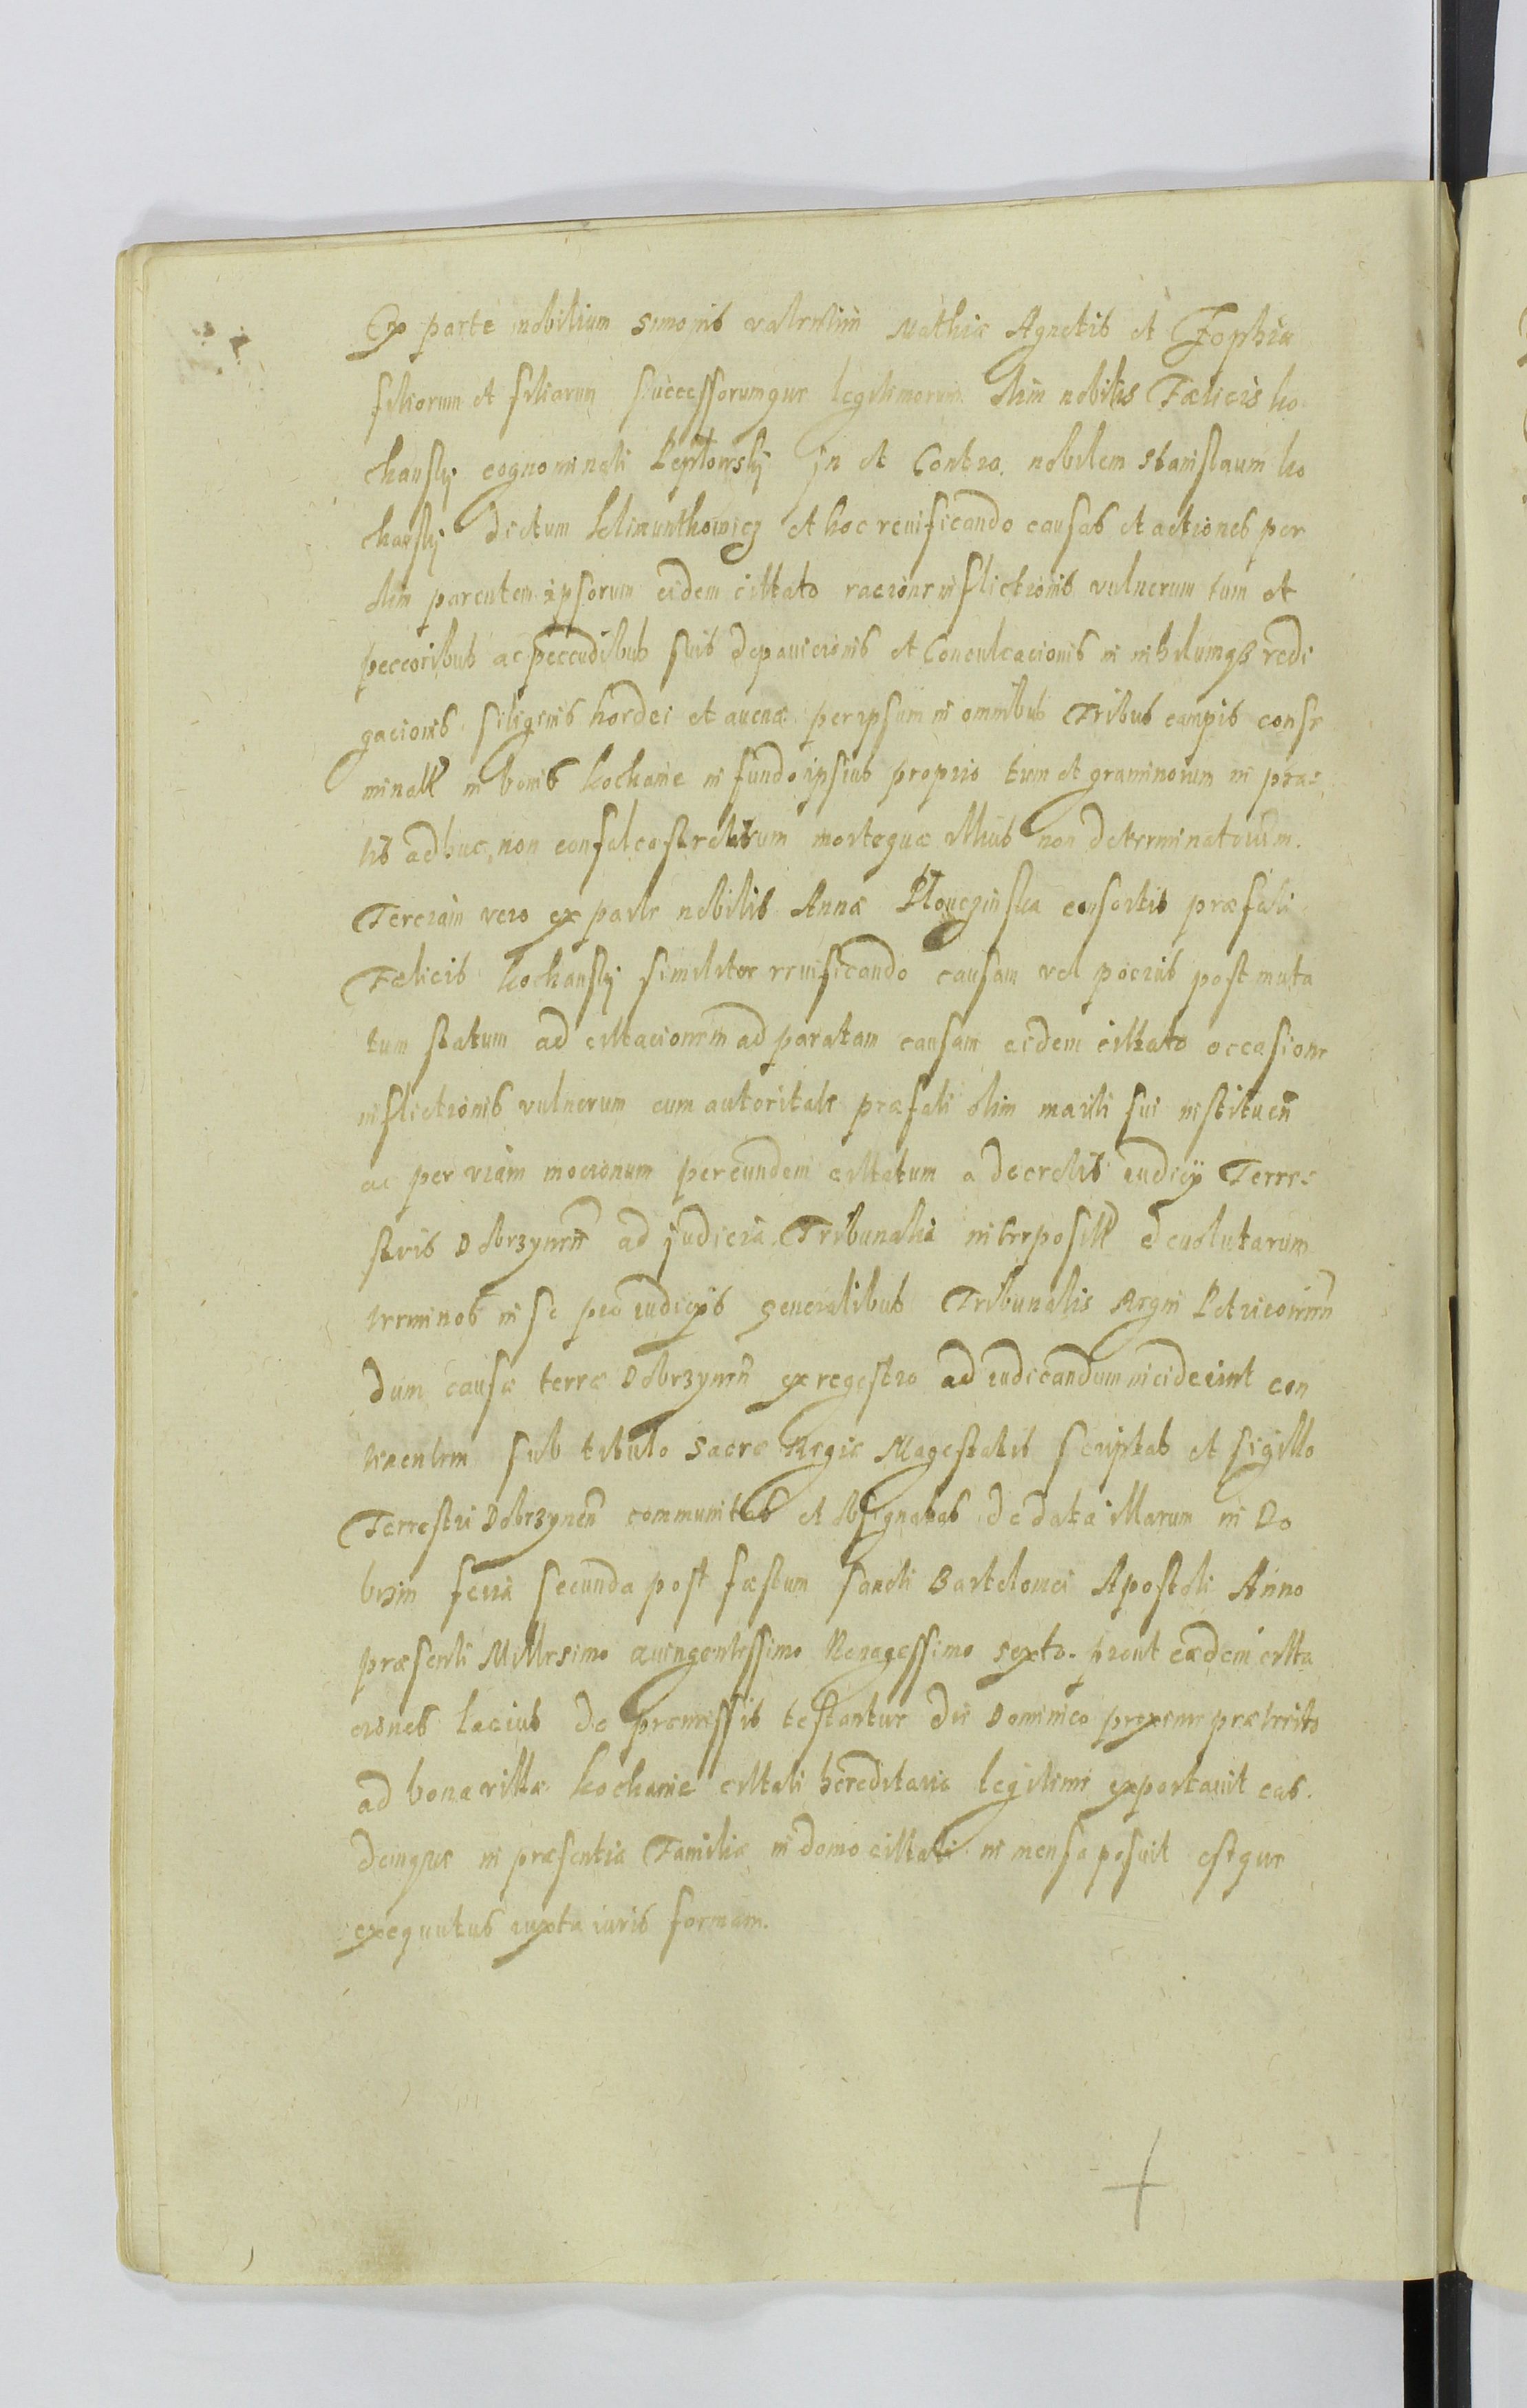 Ex parte nobilium Simonis Valentini Mathiæ Agnetis et Zophiæ
filiorum et filiarum successorumque legitimorum olim nobilis Fælicis Ko
chansky cognominati in et Contra nobilem Stanislaum Ko
chansky dictum Klimunthowicz et hoc reuificando causas et actiones per
olim parentem ipsorum eidem cittato racione inflictionis vulnerum tum et
peccoribus ac peccudibus suis depauicionis et Conculcacionis in nihilumqз redi
gacionis siliginis hordei et auenæ per ipsum in omnibus tribus campis conse
minatt in bonis Kochanie in fundo ipsius proprio tum et graminorum in pra=
tis adhuc non morteque illius non determinatarum.
Terciam vero ex parte nobilis Annæ consortis præfati
Fælicis Kochansky similiter reuificando causam vel pocius post muta
tum statum ad cittacionem ad paratam causam eidem cittato occasione
inflictionis vulnerum cum autoritate præfati olim mariti sui instituen
ac per viam mocionum per eundem cittatum a decretis iudicii Terre=
stris Dobrzynen ad judicia Tribunalia interposit deuolutarum
terminos in se pro iudicijs generalibus Tribunalis Regni Petricouien
dum causæ terræ Dobrzynen ex regestro ad iudicandum inciderint con
uacentem sub titulo Sacræ Regiæ Magestatis scriptas et sigillo
Terrestri Dobrzynen communitas et obsignatas de data illarum in Do
brzin feria secunda post fæstum sancti Bartolomei Apostoli Anno
præsenti Millesimo Quingentessimo Nonagessimo Sexto. prout eædem citta
ciones lacius de præmissis testantur die Dominico proxime præterito
ad bona villæ Kochanie cittati hereditaria legitime exportauit eas.
demque in præsentia Familiæ in domo cittati in mensa posuit estque
exequutus iuxta iuris formam.